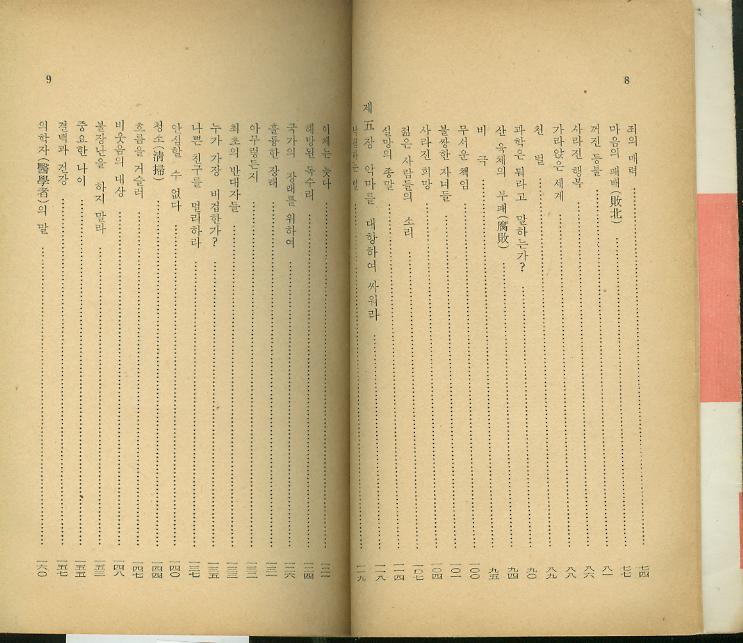 8
죄의 매력 七四
마음의 패배(敗北) 七七
꺼진 등불 八一
사라진 행복 八六
가라앉은 세계 八八
천 벌 八九
과학은 뭐라고 말하는가? 九〇
산 육체의 부패(腐敗) 九四
비 극 九五
무서운 책임 一〇〇
불쌍한 자녀들 一〇一
사라진 희망 一〇四
젊은 사람들의 소리 一〇七
실망의 종말 一一四
제 五 장 악마를 대항하여 싸워라 一一八
一一九
9
이제는 늦다 一二一
해방된 독수리 一二四
국가의 장래를 위하여 一二六
훌륭한 장래 一三一
아무렇든지 一三二
최초의 반대자들 一三三
누가 가장 비겁한가? 一三五
나쁜 친구를 멀리하라 一三七
안심할 수 없다 一四〇
청소(淸掃) 一四四
흐름을 거슬러 一四七
비웃음의 대상 一四八
불장난을 하지 말라 一五三
중요한 나이 一五五
결벽과 건강 一五七
의학자(醫學者)의 말 一六〇